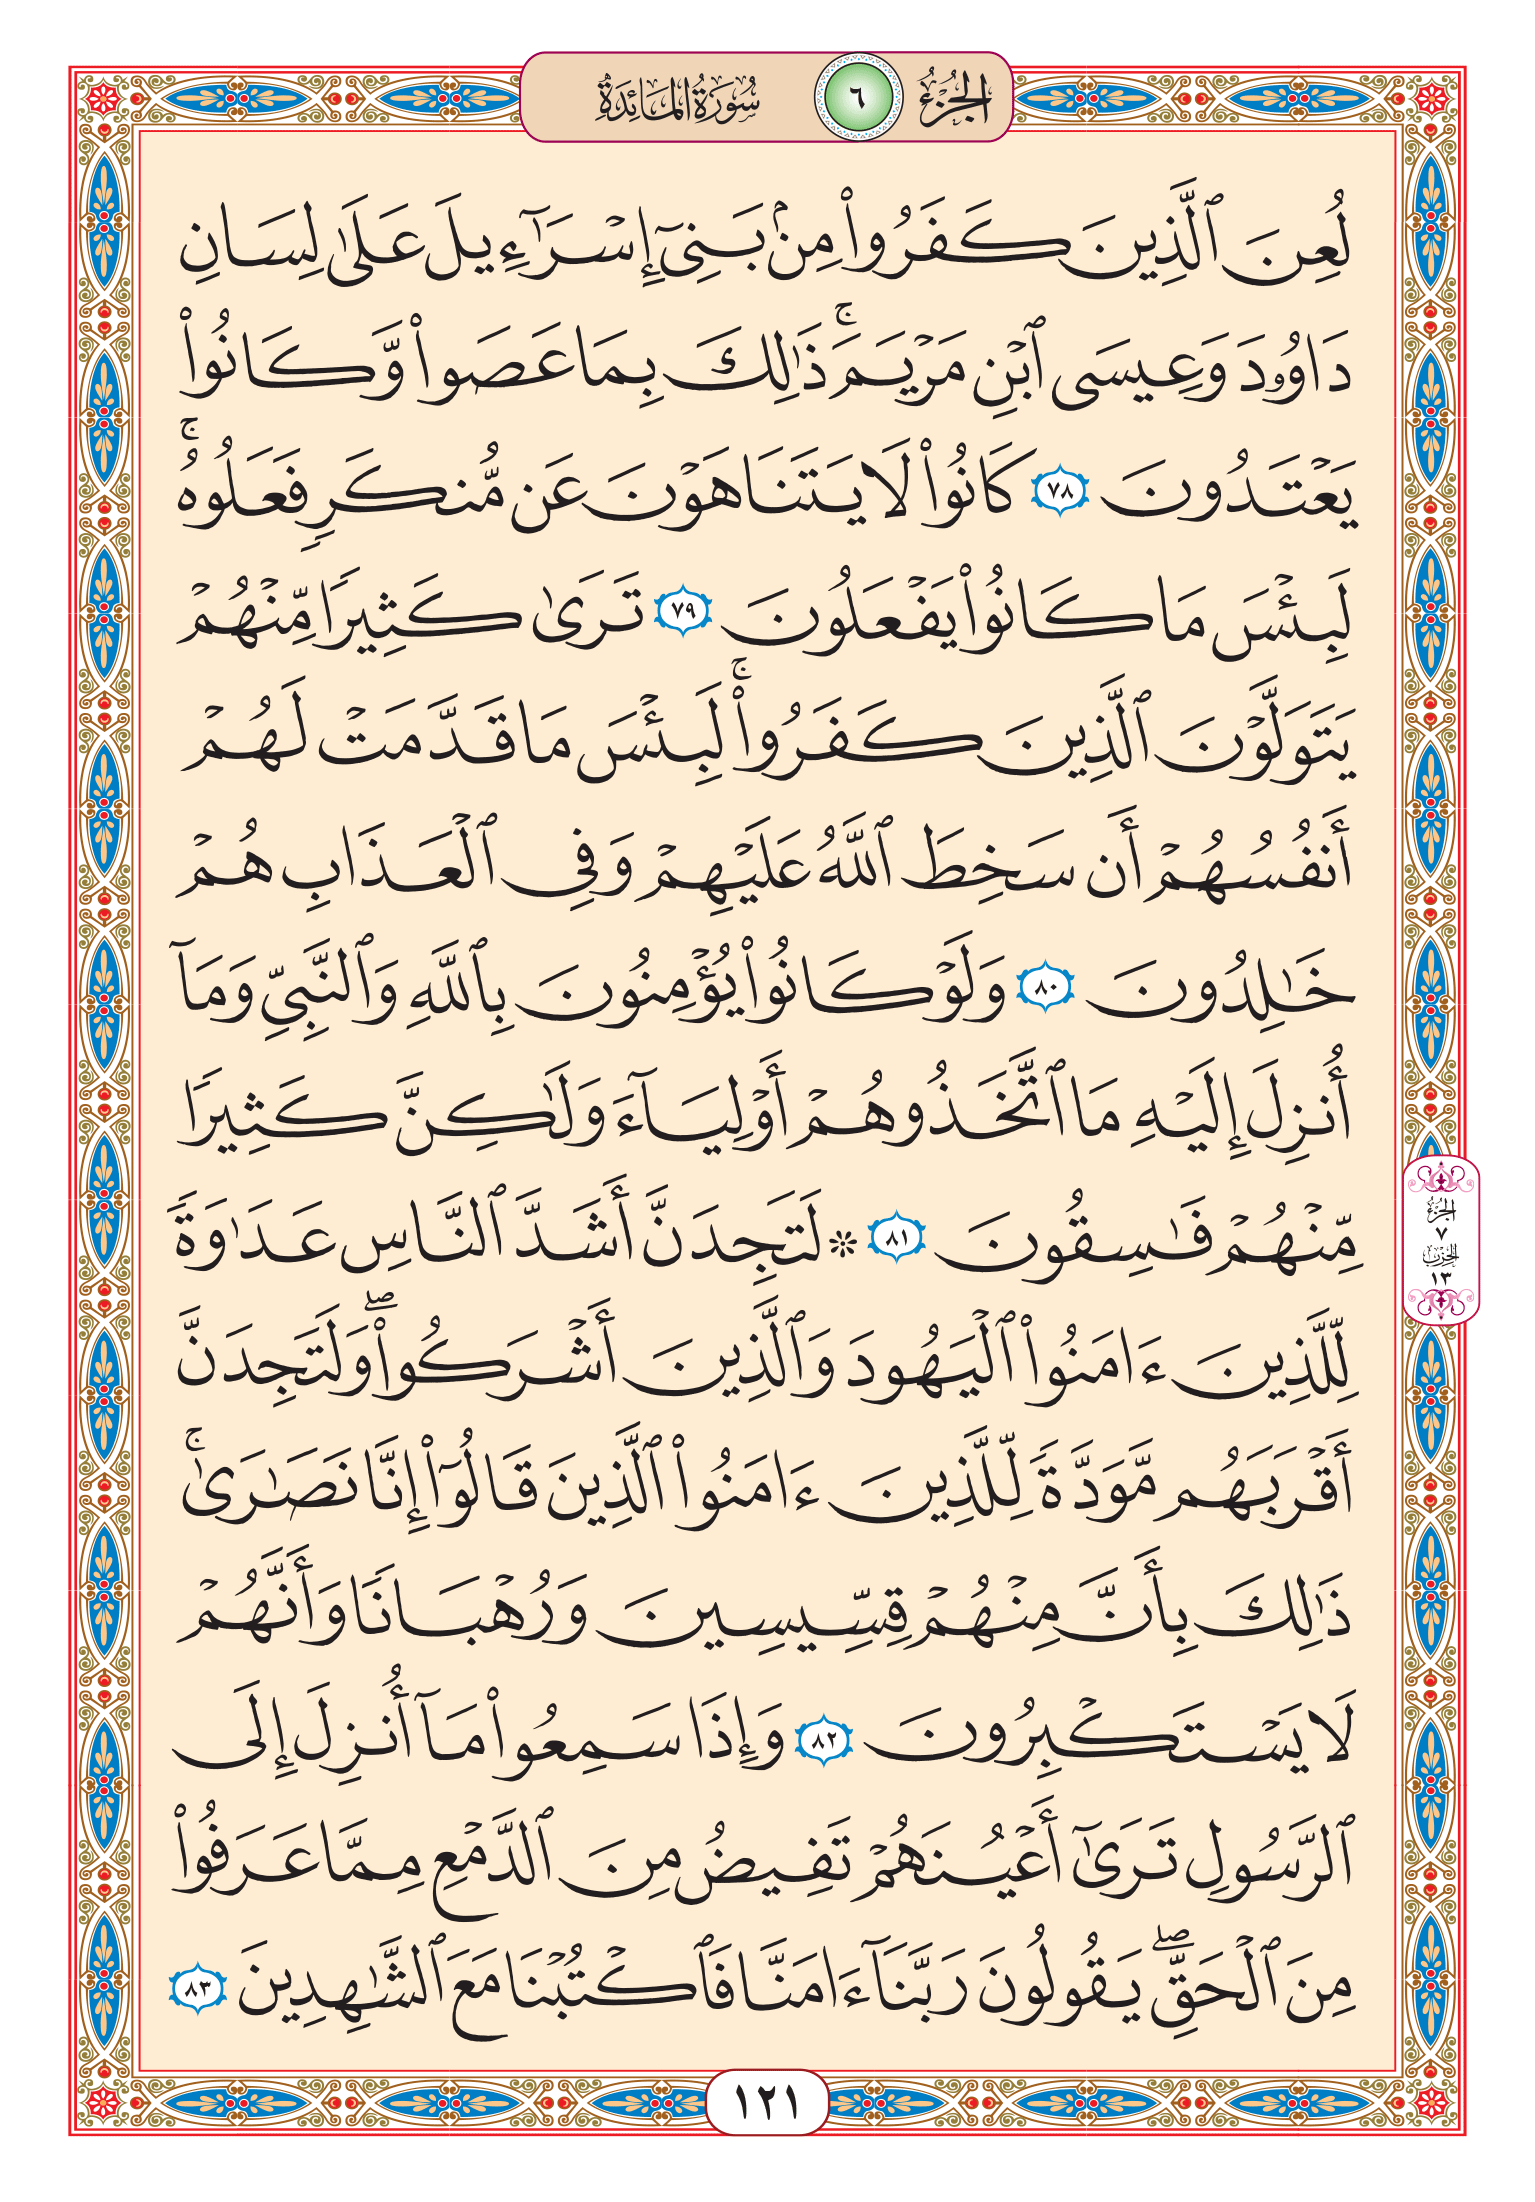 الجزء ٦ سورة المائدة
لُعِنَ ٱلَّذِينَ كَفَرُوا۟ مِنۢ بَنِىٓ إِسْرَٰٓءِيلَ عَلَىٰ لِسَانِ
دَاوُۥدَ وَعِيسَى ٱبْنِ مَرْيَمَ ۚ ذَٰلِكَ بِمَا عَصَوا۟ وَّكَانُوا۟
يَعْتَدُونَ ٧٨ كَانُوا۟ لَا يَتَنَاهَوْنَ عَن مُّنكَرٍ فَعَلُوهُ ۚ
لَبِئْسَ مَا كَانُوا۟ يَفْعَلُونَ ٧٩ تَرَىٰ كَثِيرًا مِّنْهُمْ
يَتَوَلَّوْنَ ٱلَّذِينَ كَفَرُوا۟ ۚ لَبِئْسَ مَا قَدَّمَتْ لَهُمْ
أَنفُسُهُمْ أَن سَخِطَ ٱللَّهُ عَلَيْهِمْ وَفِى ٱلْعَذَابِ هُمْ
خَٰلِدُونَ ٨٠ وَلَوْ كَانُوا۟ يُؤْمِنُونَ بِٱللَّهِ وَٱلنَّبِىِّ وَمَآ
أُنزِلَ إِلَيْهِ مَا ٱتَّخَذُوهُمْ أَوْلِيَآءَ وَلَٰكِنَّ كَثِيرًا
مِّنْهُمْ فَٰسِقُونَ ٨١ ۞ لَتَجِدَنَّ أَشَدَّ ٱلنَّاسِ عَدَٰوَةً
لِّلَّذِينَ ءَامَنُوا۟ ٱلْيَهُودَ وَٱلَّذِينَ أَشْرَكُوا۟ ۖ وَلَتَجِدَنَّ
أَقْرَبَهُم مَّوَدَّةً لِّلَّذِينَ ءَامَنُوا۟ ٱلَّذِينَ قَالُوٓا۟ إِنَّا نَصَٰرَىٰ ۚ
ذَٰلِكَ بِأَنَّ مِنْهُمْ قِسِّيسِينَ وَرُهْبَانًا وَأَنَّهُمْ
لَا يَسْتَكْبِرُونَ ٨٢ وَإِذَا سَمِعُوا۟ مَآ أُنزِلَ إِلَى
ٱلرَّسُولِ تَرَىٰٓ أَعْيُنَهُمْ تَفِيضُ مِنَ ٱلدَّمْعِ مِمَّا عَرَفُوا۟
مِنَ ٱلْحَقِّ ۖ يَقُولُونَ رَبَّنَآ ءَامَنَّا فَٱكْتُبْنَا مَعَ ٱلشَّٰهِدِينَ ٨٣
الجزء
٧
الحزب
١٣
١٢١